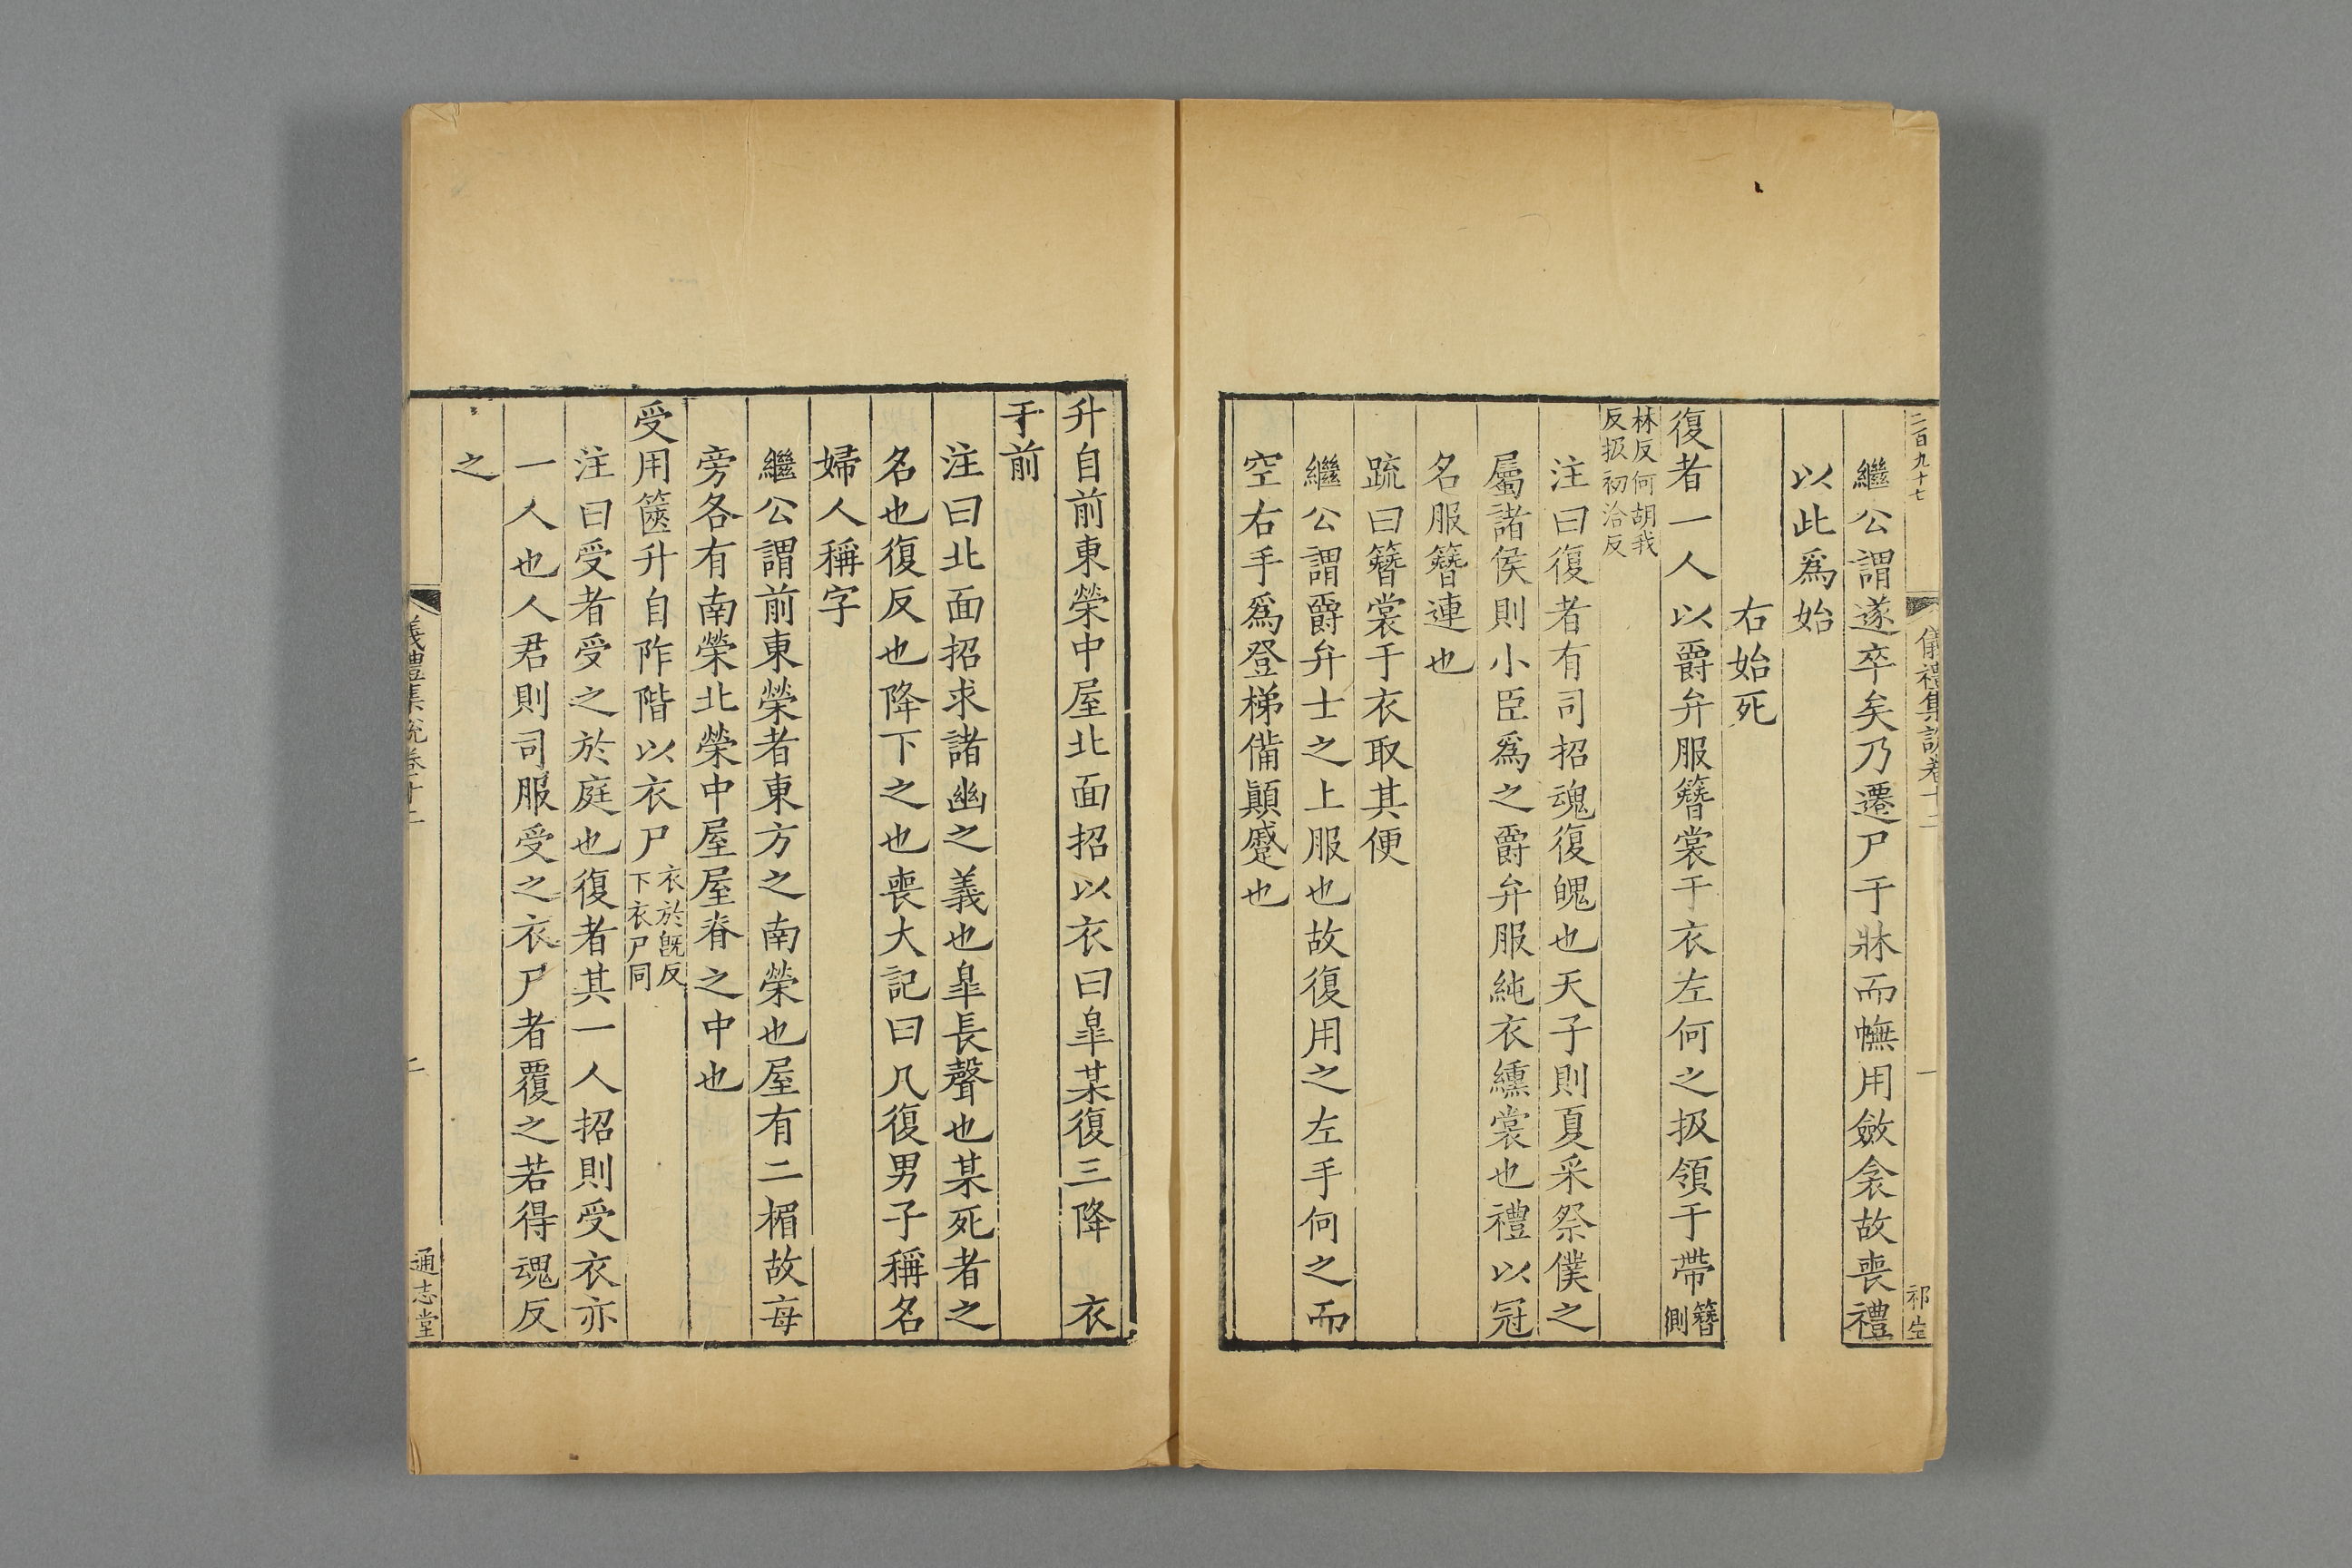 二百九十七
儀禮集說卷十二
一
祁生
繼公謂遂卒矣乃遷尸于牀而幠用斂衾故喪禮
以此爲始
右始死
復者一人以爵弁服簪裳于衣左何之扱領于帶簪側
林反何胡我
反扱初洽反
注曰復者有司招魂復魄也天子則夏采祭僕之
屬諸侯則小臣爲之爵弁服純衣纁裳也禮以冠
名服簪連也
疏曰簪裳于衣取其便
繼公謂爵弁士之上服也故復用之左手何之而
空右手爲登梯備顛蹙也
升自前東榮中屋北面招以衣曰皐某復三降 衣
于前
注曰北面招求諸幽之義也皐長聲也某死者之
名也復反也降下之也喪大記曰凡復男子稱名
婦人稱字
繼公謂前東榮者東方之南榮也屋有二楣故每
旁各有南榮北榮中屋屋脊之中也
受用篋升自阼階以衣尸衣於旣反
下衣尸同
注曰受者受之於庭也復者其一人招則受衣亦
一人也人君則司服受之衣尸者覆之若得魂反
之
儀禮集說卷十二
二
通志堂